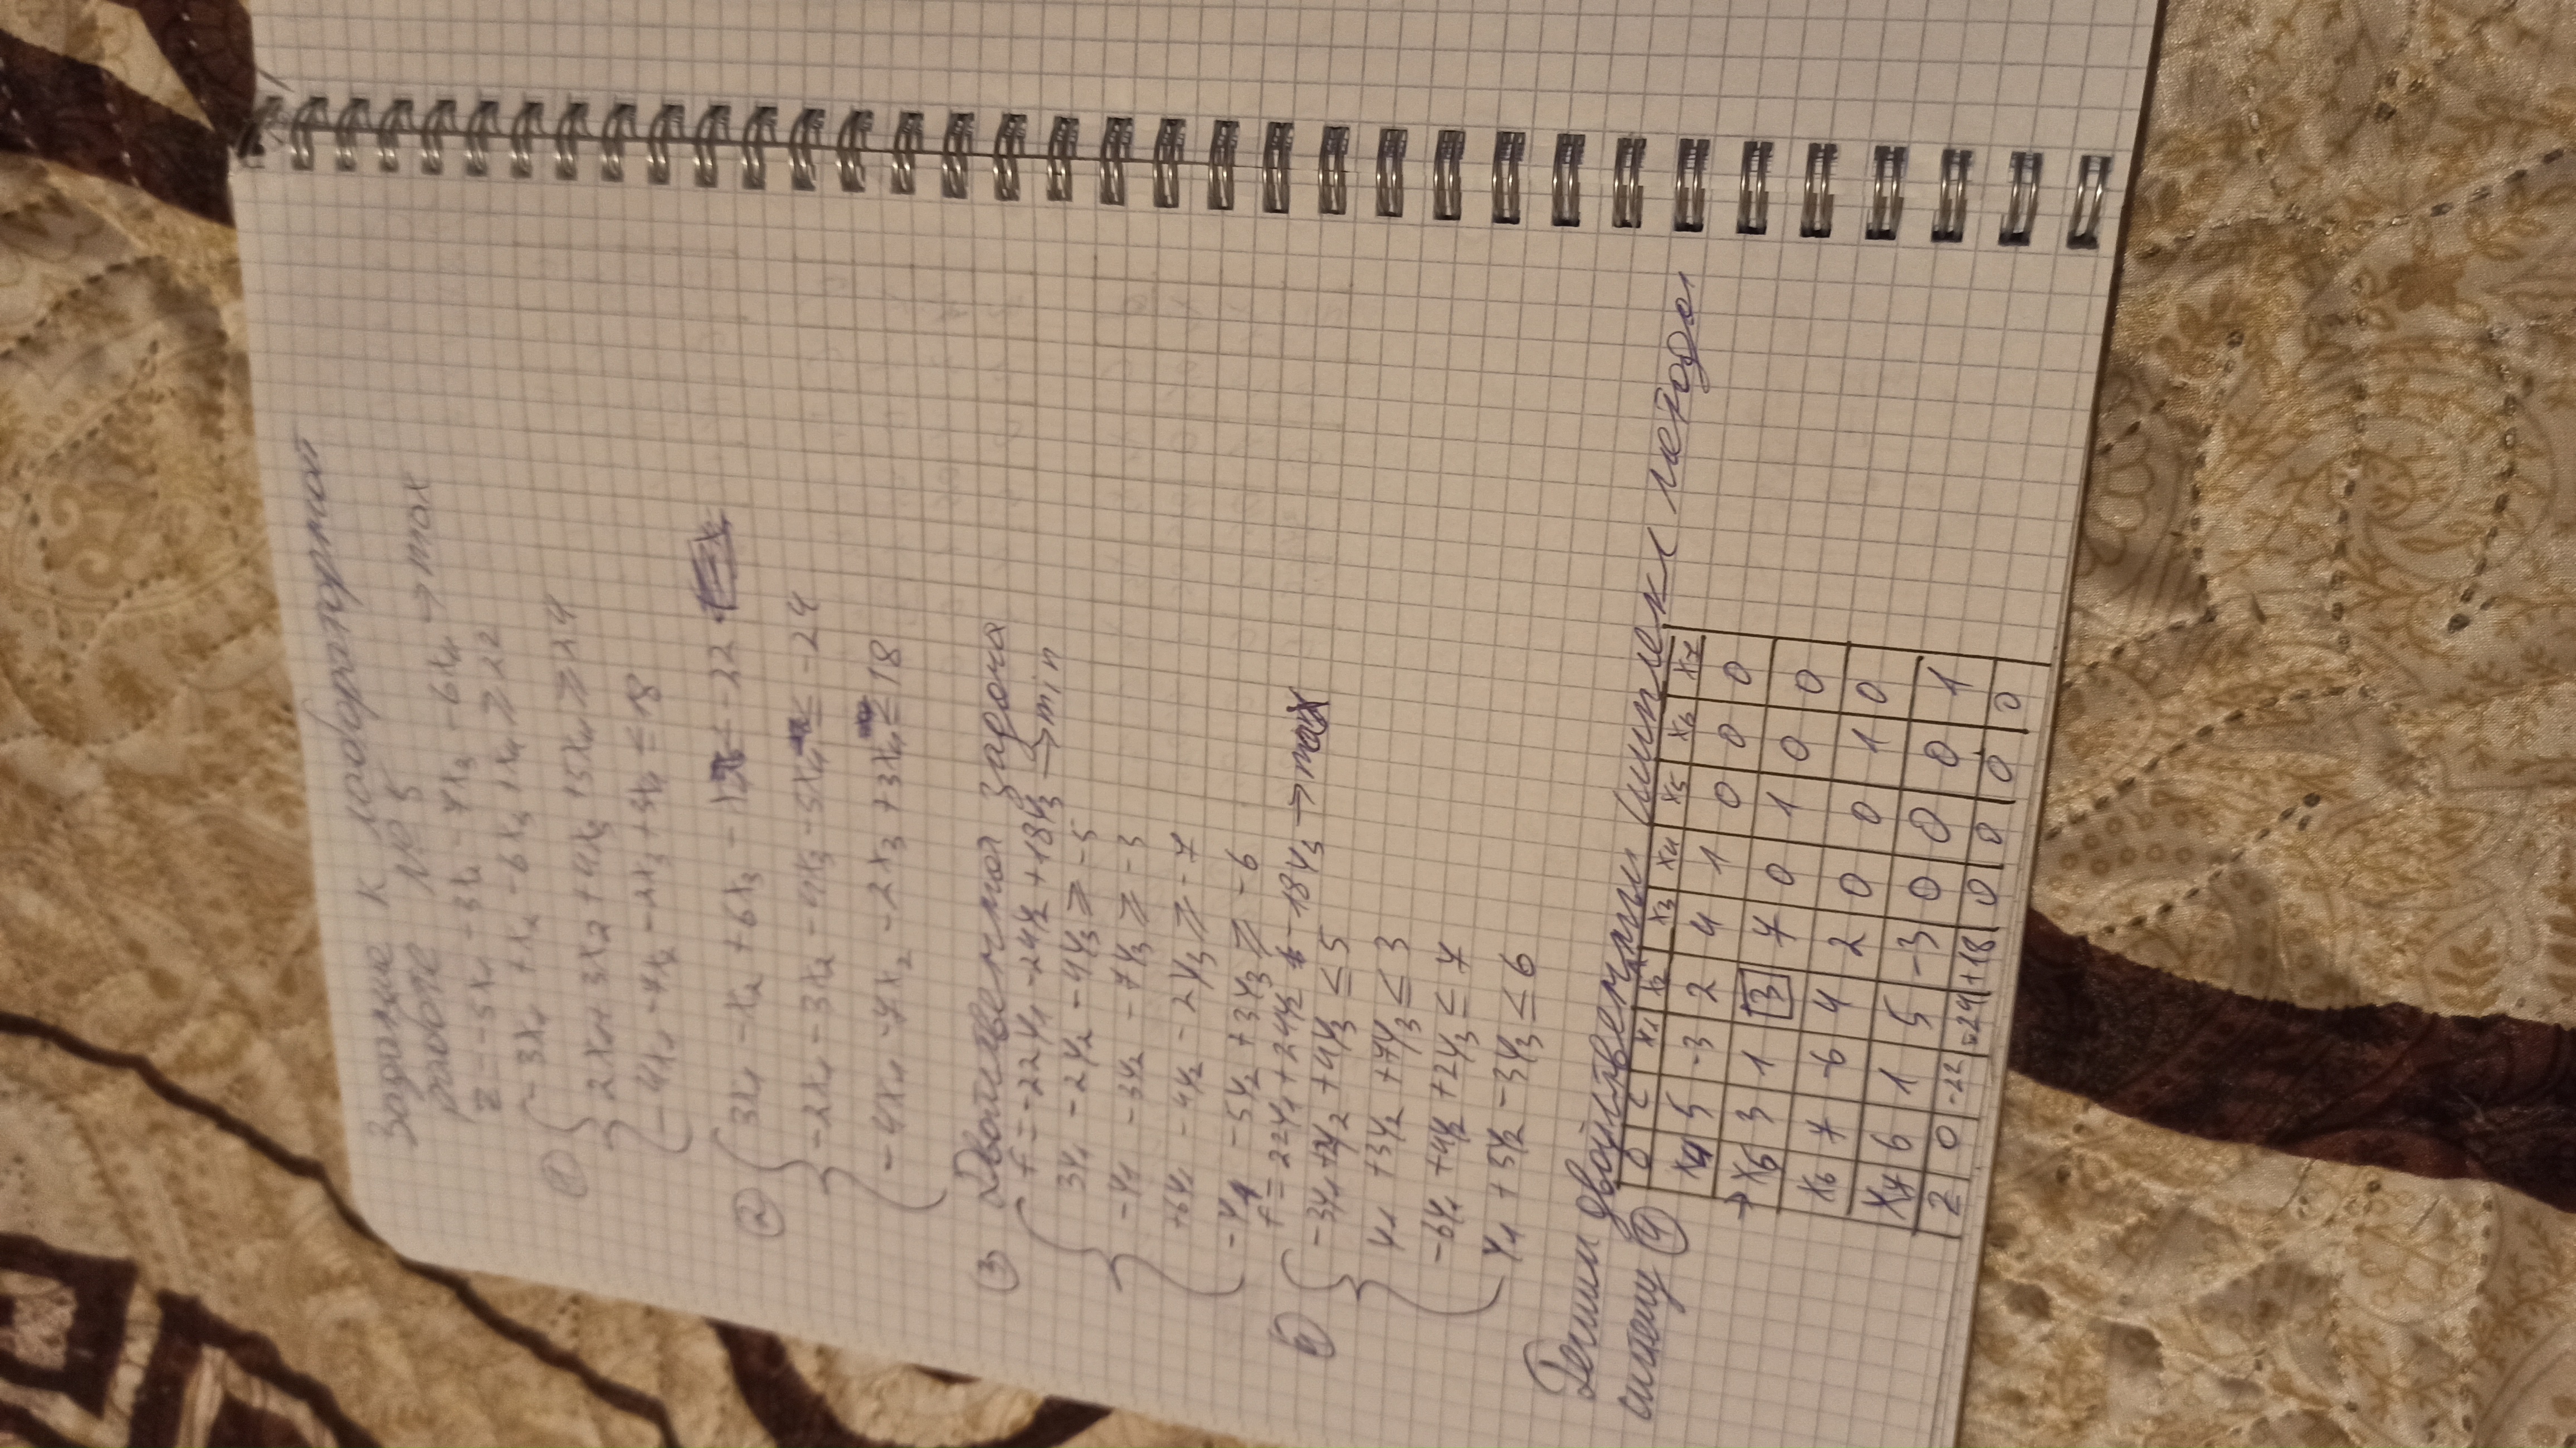 Задание к лабораторной
работе № 5
z = -5x₁ - 3x₂ - 7x₃ - 6x₄ → max
① { -3x₁ + x₂ - 6x₃ + x₄ ≥ 22
2x₁ + 3x₂ + 4x₃ + 5x₄ ≥ 24
-4x₁ - 7x₂ - 2x₃ + 3x₄ ≤ 18
② { 3x₁ - x₂ + 6x₃ - x₄ ≤ -22
-2x₁ - 3x₂ - 4x₃ - 5x₄ ≤ -24
-4x₁ - 7x₂ - 2x₃ + 3x₄ ≤ 18
③ Двойственная задача
{ f = -22y₁ - 24y₂ + 18y₃ → min
3y₁ - 2y₂ - 4y₃ ≥ -5
-y₁ - 3y₂ - 7y₃ ≥ -3
+6y₁ - 4y₂ - 2y₃ ≥ -7
-y₁ - 5y₂ + 3y₃ ≥ -6
f = 22y₁ + 24y₂ - 18y₃ → max
④ { -3y₁ + 2y₂ + 4y₃ ≤ 5
y₁ + 3y₂ + 7y₃ ≤ 3
-6y₁ + 4y₂ + 2y₃ ≤ 7
y₁ + 5y₂ - 3y₃ ≤ 6
Решим двойственным симплекс методом
систему ④
x₁ x₂ x₃ x₄ x₅ x₆ x₇
x₄ 5 -3 2 4 1 0 0 0
→ x₅ 3 1 3 7 0 1 0 0
x₆ 7 -6 4 2 0 0 1 0
x₇ 6 1 5 -3 0 0 0 1
z 0 -22 -24 +18 0 0 0 0